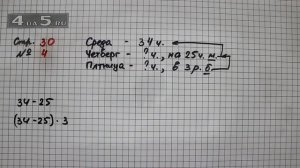 4 ОТ 5.RU
Стр. 30
№ 4
Среда - 34 ч.
Четверг - ? ч., на 25 ч. м.
Пятница - ? ч., в 3 р. б.
34 - 25
(34 - 25) · 3